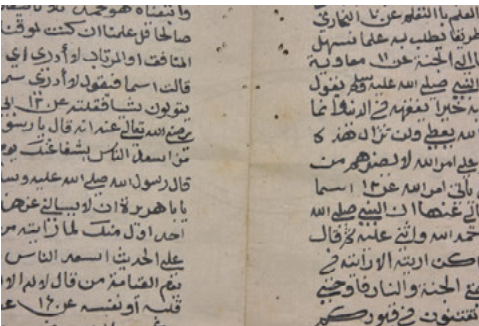 العلم بالتعلم عن ٧ البخاري
طريقا يطلب به علما سهل
الى الجنة عن ١١ معاوية
النبي صلى الله عليه وسلم يقول
خيرا يفقهه في الدين وانما
الله يعطي ولن تزال هذه
على امر الله لا يضرهم من
ياتي امر الله عن ١٢ اسما
عنها ان النبي صلى الله
حمد الله واثنى عليه ثم قال
اكن اريته الا رايته في
الجنة والنار فاوحي
تفتنون في قبوركم
واتبعناه هو محمد ثلاثا
صالحا قد علمنا ان كنت لموقنا
المنافق او المرتاب لا ادري اي
قالت اسما فيقول لا ادري
يقولون شيا فقلته عن ١٣
رضي الله تعالى عنه انه قال يا رسول
من اسعد الناس بشفاعتك
قال رسول الله صلى الله عليه
يا با هريرة ان لا يسالني عن هذا
احد اول منك لما رايته من
على الحديث اسعد الناس
يوم القيامة من قال لا اله الا
قلبه او نفسه عن ١٤